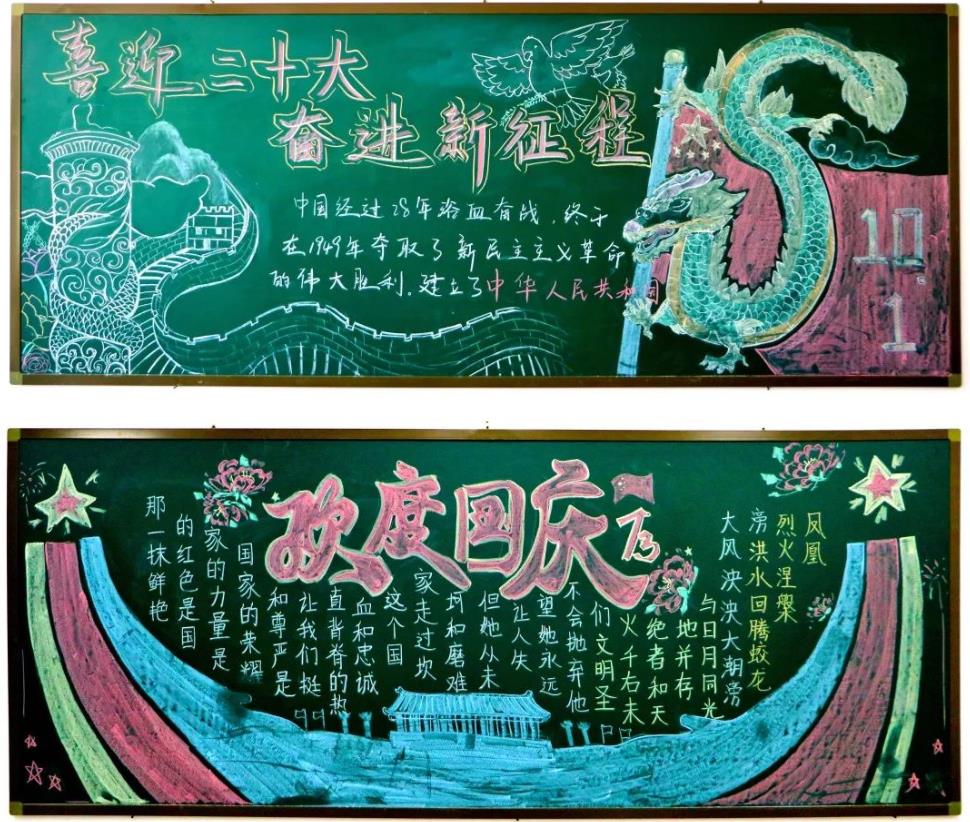 喜迎二十大
奋进新征程
中国经过28年浴血奋战，终于
在1949年夺取了新民主主义革命
的伟大胜利。建立了中华人民共和国
10
1
欢度国庆73
那一抹鲜艳
的红色是国
家的力量是
国家的荣耀
和尊严是
让我们挺
直背脊的热
血和忠诚
这个国
家走过坎
坷和磨难
但她从未
让人失
望她永远
不会抛弃他
们文明圣
火千右未
绝者和天
地并存
与日月同光
大风泱泱大潮滂
滂洪水回腾蛟龙
烈火涅槃
凤凰